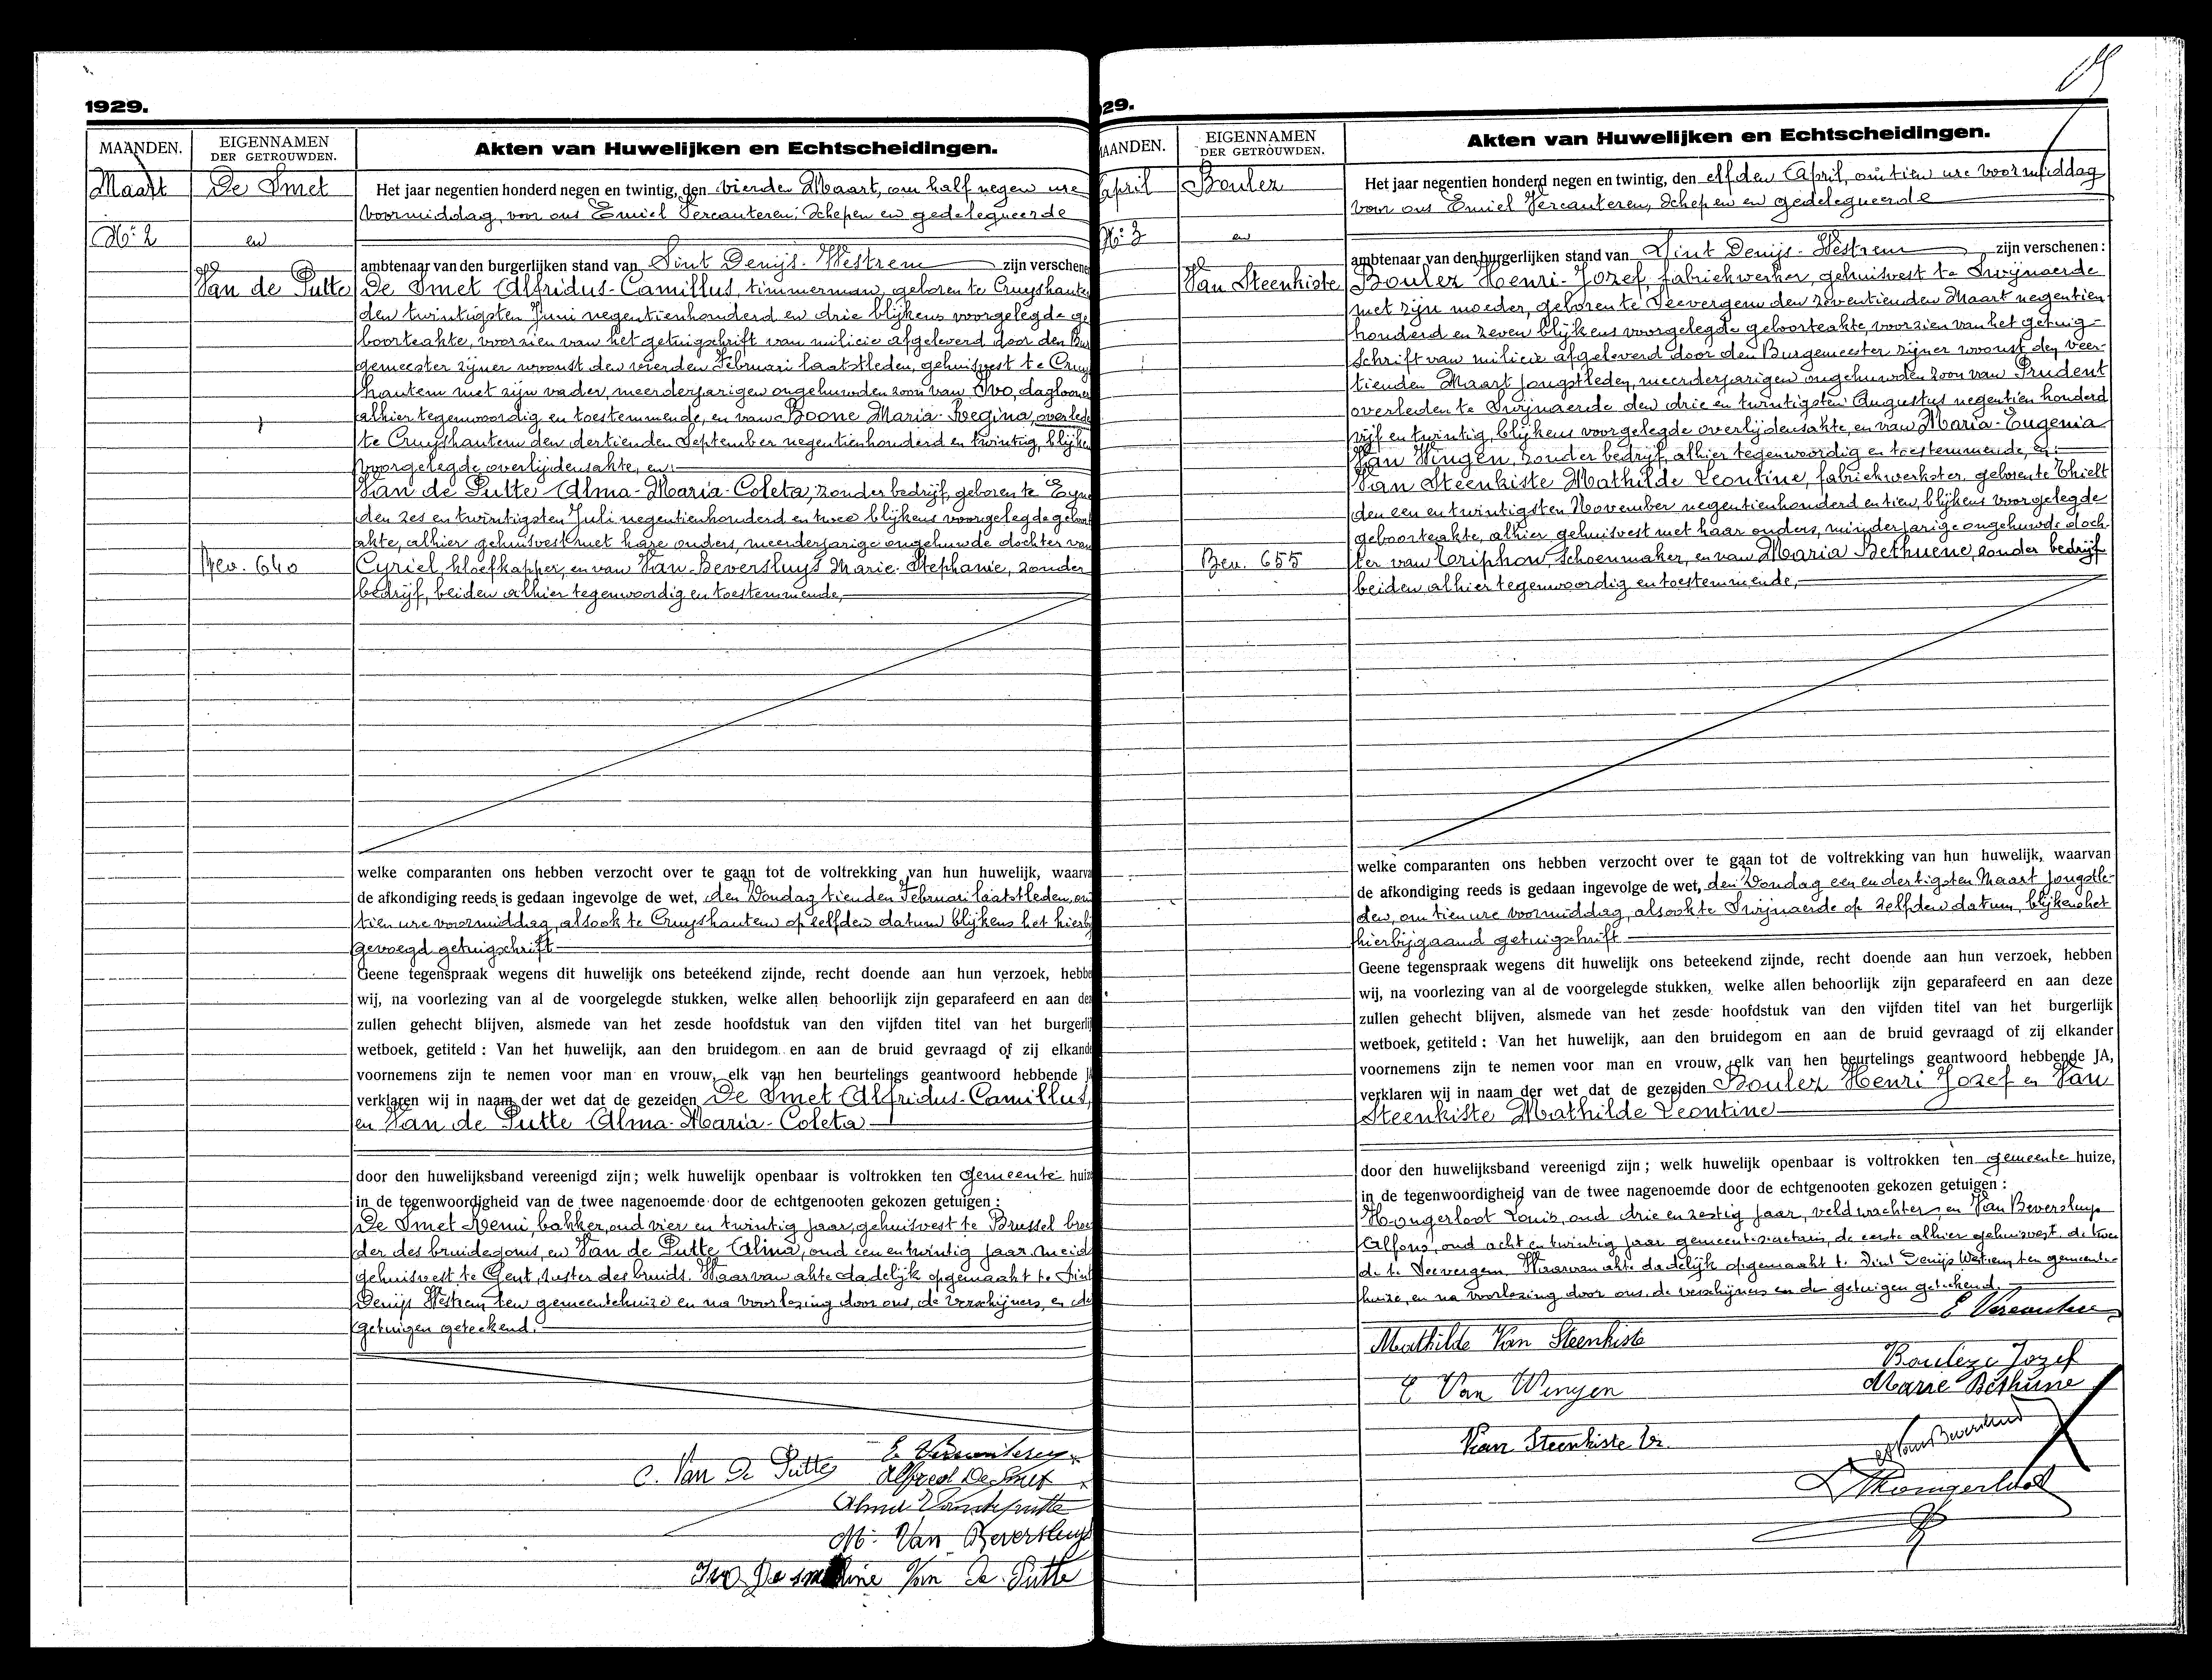 1929.
MAANDEN.
EIGENNAMEN
DER GETROUWDEN.
Akten van Huwelijken en Echtscheidingen.
Maart
De Smet
No: 2
en
Van de Putte
Rev. 640
Het jaar negentien honderd negen en twintig, den vierden Maart, om half negen ure
voormiddag, voor ons Emiel Vercauteren, Schepen en gedelegueerde
ambtenaar van den burgerlijken stand van Sint Denijs-Westrem zijn verschene
De Smet Alfridus-Camillus, timmerman, geboren te Cruyshaute
den twintigsten Juni negentienhonderd en drie blijkens voorgelegde ge
boorteakte, voorzien van het getuigschrift van milicie afgeleverd door den Bur
gemeester zijner woonst den vierden Februari laatstleden, gehuisvest te Cruys
hautem met zijn vader, meerderjarigen ongehuwden zoon van Ivo, dagloone
alhier tegenwoordig en toestemmende, en van Boone Maria-Regina, overlede
te Cruyshautem den dertienden September negentienhonderd en twintig, blijke
voorgelegde overlijdensakte, en:
Van de Putte Alma-Maria-Coleta, zonder bedrijf, geboren te Eyne
den zes en twintigsten Juli negentienhonderd en twee blijkens voorgelegde geboort
akte, alhier gehuisvest met hare ouders, meerderjarige ongehuwde dochter van
Cyriel, kloefkapper, en van Van Beversluys Marie-Stephanie, zonder
bedrijf, beiden alhier tegenwoordig en toestemmende,
welke comparanten ons hebben verzocht over te gaan tot de voltrekking van hun huwelijk, waarva
de afkondiging reeds is gedaan ingevolge de wet, den Zondag tienden Februari laatstleden, om
tien ure voormiddag, alsook te Cruyshautem op zelfden datum blijkens het hierbij
gevoegd getuigschrift
Geene tegenspraak wegens dit huwelijk ons beteekend zijnde, recht doende aan hun verzoek, hebbe
wij, na voorlezing van al de voorgelegde stukken, welke allen behoorlijk zijn geparafeerd en aan dez
zullen gehecht blijven, alsmede van het zesde hoofdstuk van den vijfden titel van het burgerlij
wetboek, getiteld : Van het huwelijk, aan den bruidegom en aan de bruid gevraagd of zij elkande
voornemens zijn te nemen voor man en vrouw, elk van hen beurtelings geantwoord hebbende J
verklaren wij in naam der wet dat de gezeiden De Smet Alfridus-Camillus,
en Van de Putte Alma-Maria-Coleta
door den huwelijksband vereenigd zijn; welk huwelijk openbaar is voltrokken ten Gemeente huize
in de tegenwoordigheid van de twee nagenoemde door de echtgenooten gekozen getuigen :
De Smet Remi, bakker, oud vier en twintig jaar, gehuisvest te Brussel broe
der des bruidegoms, en Van de Putte Alina, oud een en twintig jaar, meid
gehuisvest te Gent, zuster des bruids. Waarvan akte dadelijk opgemaakt te Sint
Denijs Westrem ten gemeentehuize en na voorlezing door ons, de verschijners, en de
getuigen geteekend.
E. Vercauteren
C. Van De Putte
Alfred De Smet
Alma Vandeputte
M. Van Beversluys
Ivo De Smet
Van De Putte
29.
AANDEN.
EIGENNAMEN
DER GETROUWDEN.
Akten van Huwelijken en Echtscheidingen.
April
Boulez
No: 3
en
Van Steenkiste
Bev. 655
Het jaar negentien honderd negen en twintig, den elfden April, om tien ure voormiddag
voor ons Emiel Vercauteren, Schepen en gedelegueerde
ambtenaar van den burgerlijken stand van Sint Denijs-Westrem zijn verschenen:
Boulez Henri-Jozef, fabriekwerker, gehuisvest te Swijnaerde
met zijn moeder, geboren te Seevergem den zeventienden Maart negentien
honderd en zeven blijkens voorgelegde geboorteakte, voorzien van het getuig-
schrift van milicie afgeleverd door den Burgemeester zijner woonst den veer-
tienden Maart jongstleden, meerderjarigen ongehuwden zoon van Prudent
overleden te Swijnaerde den drie en twintigsten Augustus negentien honderd
vijf en twintig, blijkens voorgelegde overlijdensakte, en van Maria-Eugenia
Van Wingen, zonder bedrijf, alhier tegenwoordig en toestemmende, en:
Van Steenkiste Mathilde Leontine, fabriekwerkster, geboren te Thielt
den een en twintigsten November negentienhonderd en tien, blijkens voorgelegde
geboorteakte, alhier gehuisvest met haar ouders, minderjarige ongehuwde doch-
ter van Triphon, schoenmaker, en van Maria Bethuene, zonder bedrijf
beiden alhier tegenwoordig en toestemmende,
welke comparanten ons hebben verzocht over te gaan tot de voltrekking van hun huwelijk, waarvan
de afkondiging reeds is gedaan ingevolge de wet, den Zondag een en dertigsten Maart jongstle-
den, om tien ure voormiddag, alsook te Swijnaerde op zelfden datum, blijkens het
hierbijgaand getuigschrift
Geene tegenspraak wegens dit huwelijk ons beteekend zijnde, recht doende aan hun verzoek, hebben
wij, na voorlezing van al de voorgelegde stukken, welke allen behoorlijk zijn geparafeerd en aan deze
zullen gehecht blijven, alsmede van het zesde hoofdstuk van den vijfden titel van het burgerlijk
wetboek, getiteld : Van het huwelijk, aan den bruidegom en aan de bruid gevraagd of zij elkander
voornemens zijn te nemen voor man en vrouw, elk van hen beurtelings geantwoord hebbende JA,
verklaren wij in naam der wet dat de gezeiden Boulez Henri Jozef en Van
Steenkiste Mathilde Leontine
door den huwelijksband vereenigd zijn; welk huwelijk openbaar is voltrokken ten gemeente huize,
in de tegenwoordigheid van de twee nagenoemde door de echtgenooten gekozen getuigen :
Hongerloot Louis, oud drie en zestig jaar, veldwachter, en Van Beversluys
Alfons, oud acht en twintig jaar gemeentesecretaris, de eerste alhier gehuisvest, de twee
de te Seevergem. Waarvan akte dadelijk opgemaakt te Sint Denijs Westrem ten gemeente-
huize, en na voorlezing door ons, de verschijners en de getuigen geteekend.
E Vercauteren
Mathilde Van Steenkiste
Bouleze Jozef
E Van Wingen
Marie Bethune
Van Steenkiste Tr.
L Hongerloot